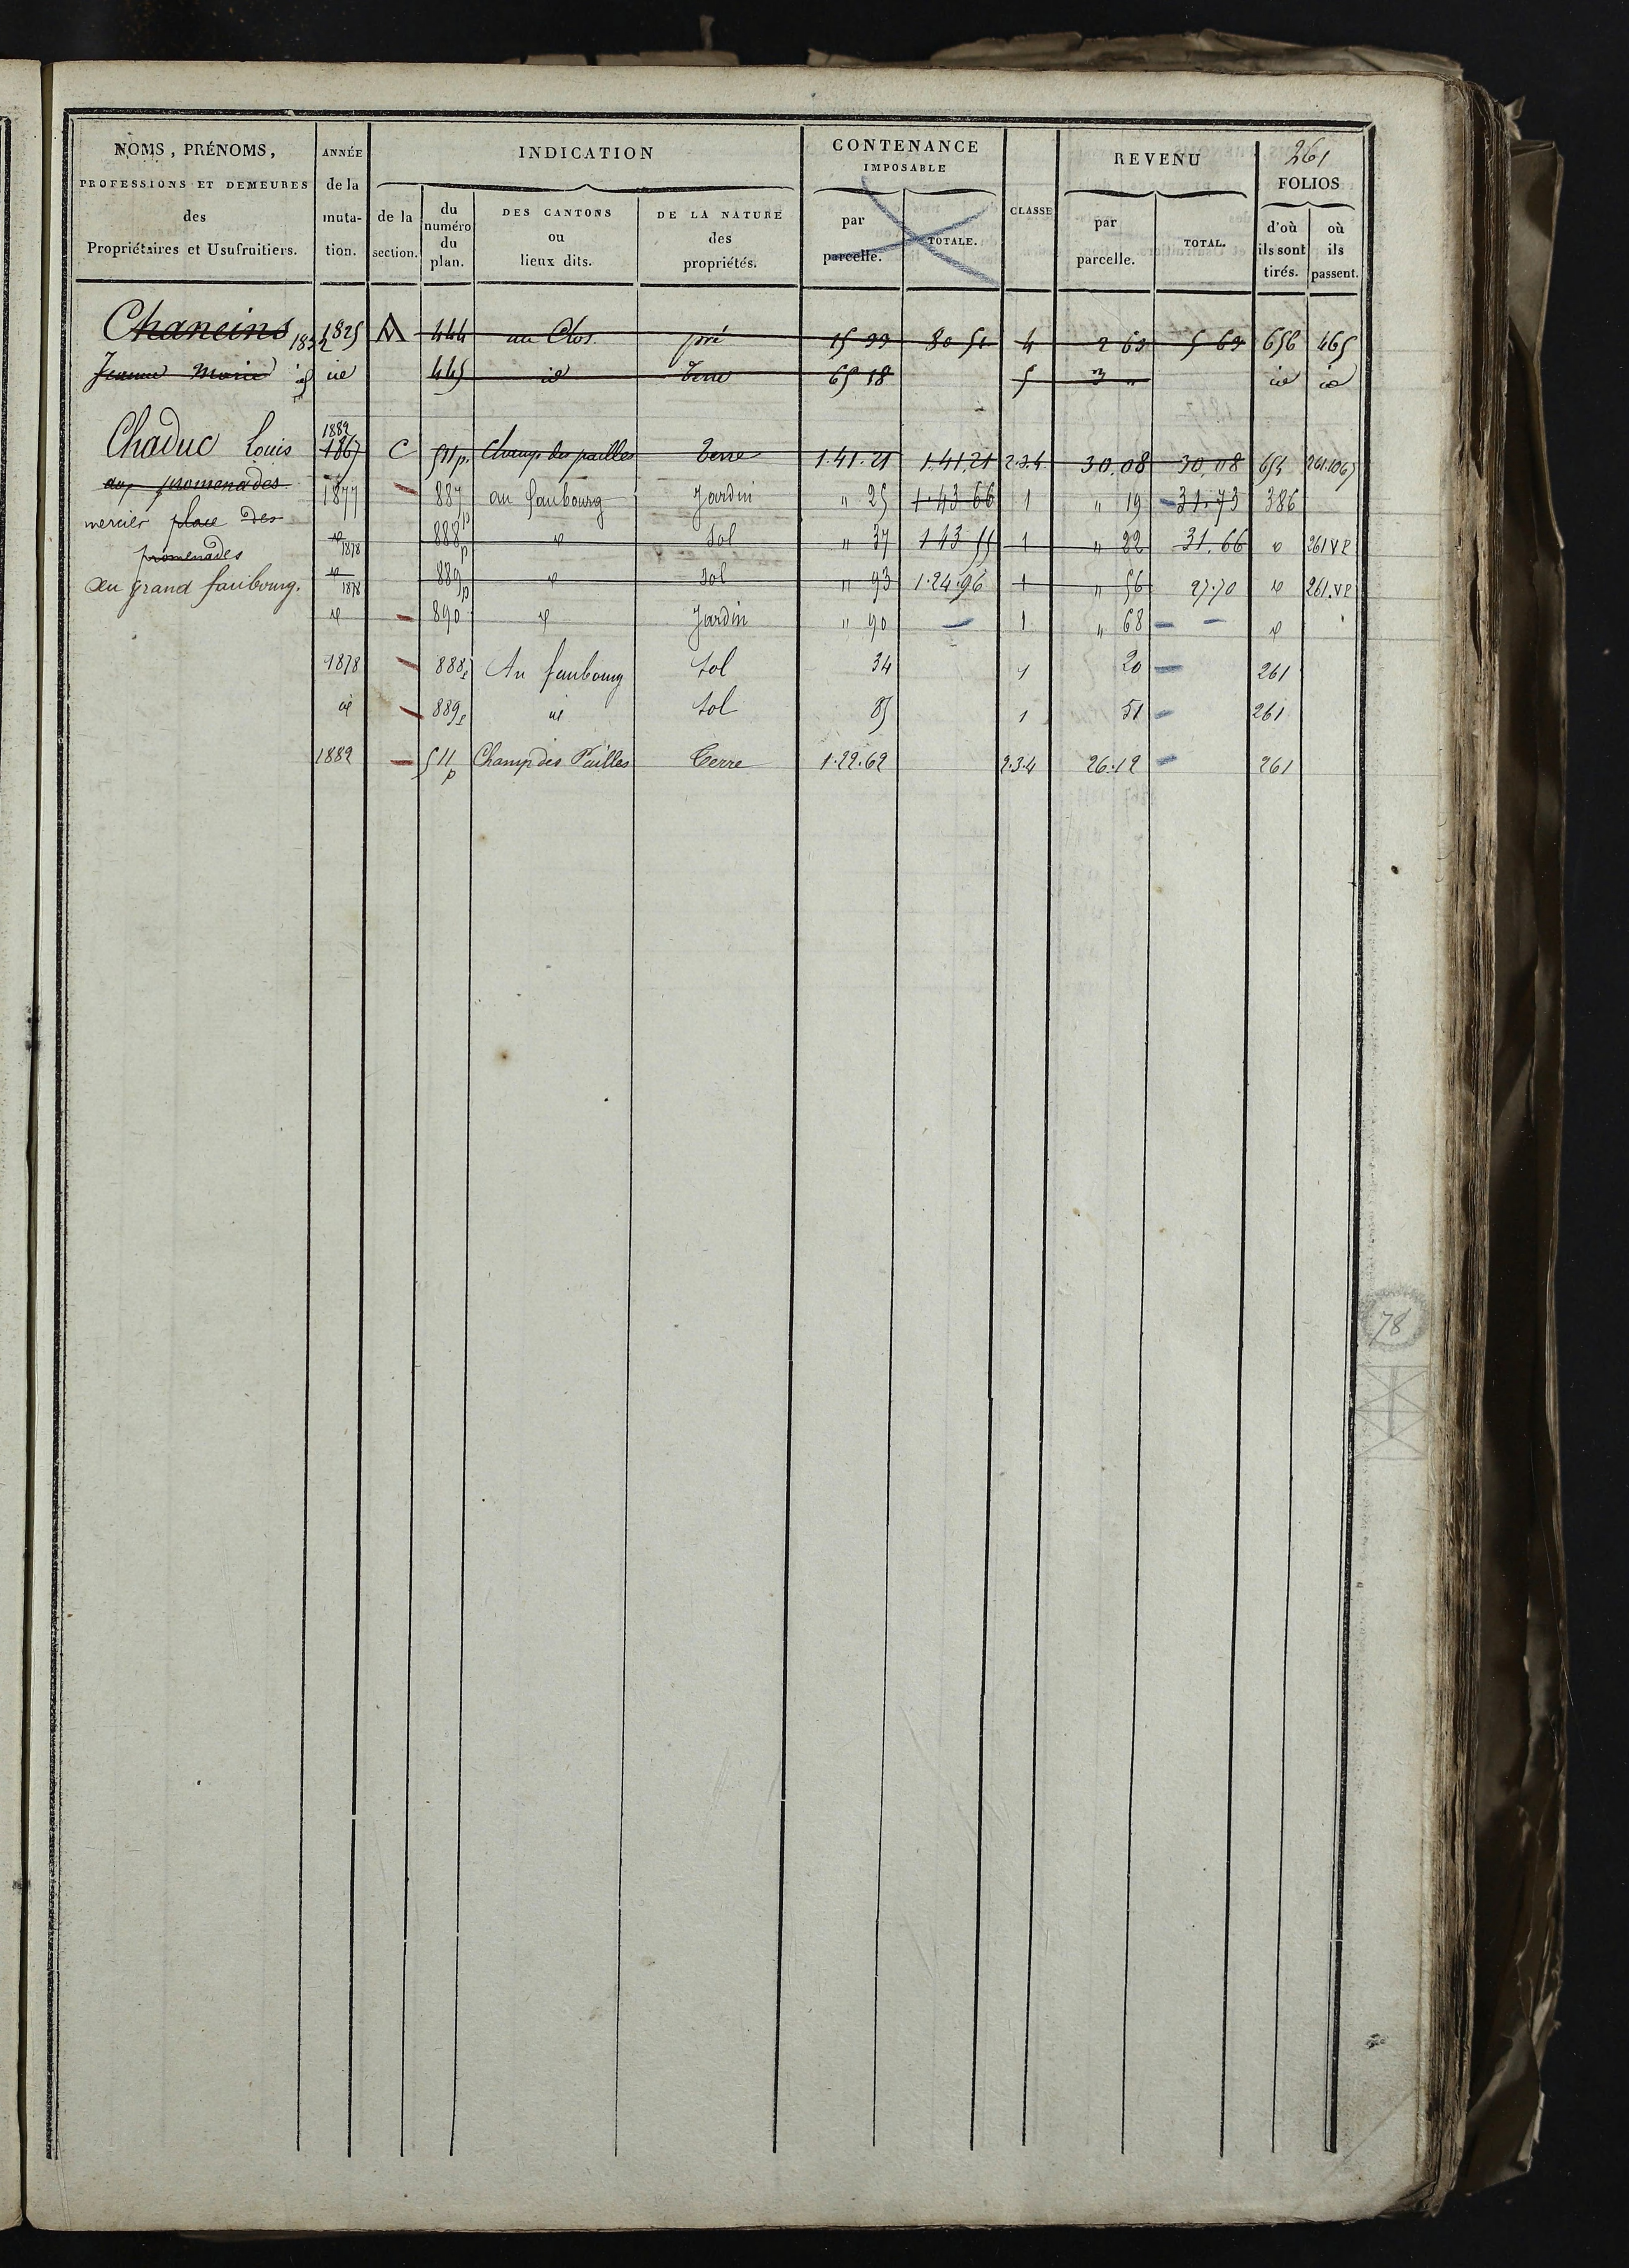 261
NOMS, PRÉNOMS, PROFESSIONS ET DEMEURES des Propriétaires et Usufruitiers.
ANNÉE de la muta- tion.
INDICATION
de la section.
du numéro du plan.
DES CANTONS ou lieux dits.
DE LA NATURE des propriétés.
CONTENANCE IMPOSABLE
par parcelle.
TOTALE.
CLASSE
REVENU
par parcelle.
TOTAL.
FOLIOS
d'où ils sont tirés.
où ils passent.
Chaneins 1832 1825 A 444 au Clos pré 15 33 80 51 4 2 63 5 63 656 465
Jeanne Marie id id 445 id Terre 65 18 5 3 " id id
1882
Chaduc Louis 1867 C 511p. Champ des pailles Terre 1.41.21 1.41.21 2.3.4 30.08 30.08 654 261.1065
aux promenades 1877 887p au faubourg Jardin " 25 1.43 66 1 " 19 31.73 386
mercier place des id 1878 888p id Sol " 37 1 43 55 1 " 22 31.66 id 261 vo
promenades
au grand faubourg. id 1878 889p id Sol " 93 1.24.96 1 " 56 27.70 id 261.vo
id 890 id Jardin " 90 1 " 68 id
1878 888p Au faubourg Sol 34 1 20 261
id 889p id Sol 85 1 51 261
1882 511p Champ des Pailles Terre 1.22.62 2.3.4 26.12 261
78